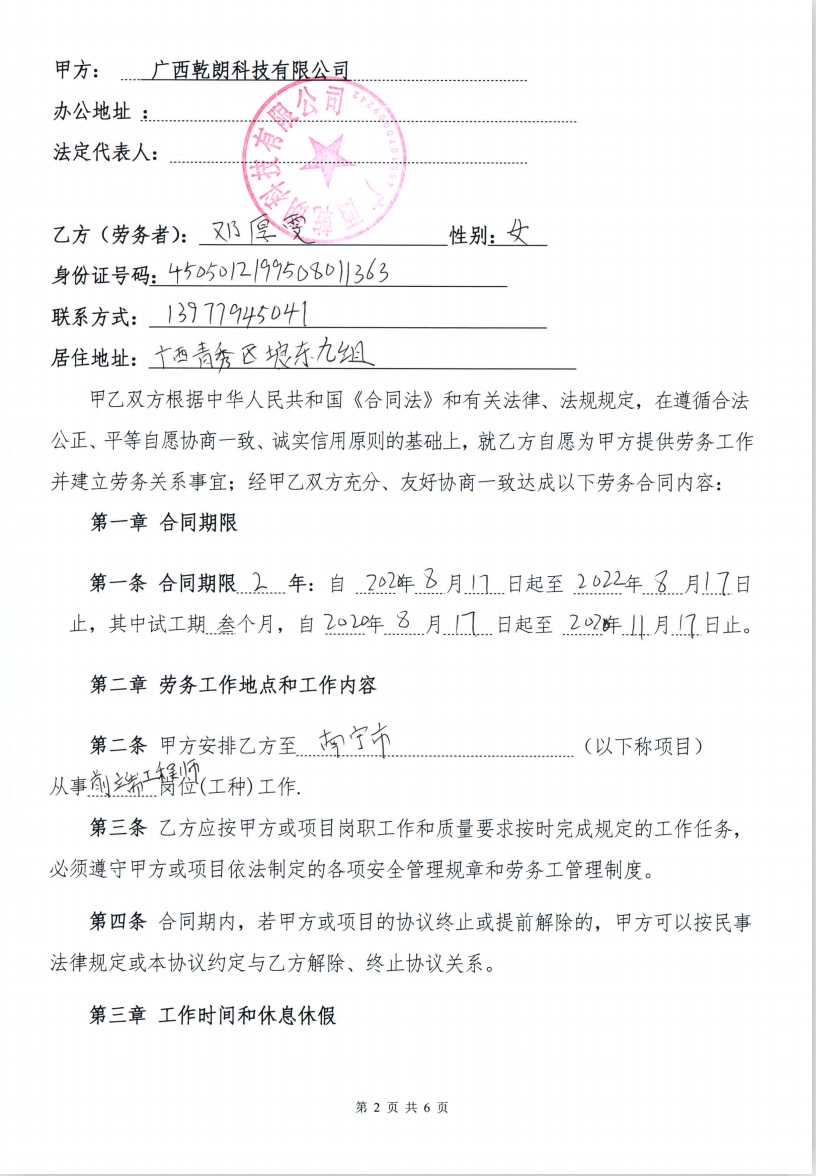 甲方： 广西乾朗科技有限公司
办公地址 ：
法定代表人：
广西乾朗科技有限公司
乙方（劳务者）： 邓厚雯 性别: 女
身份证号码: 450501219950801363
联系方式： 13977945041
居住地址: 广西青秀区埌东九组
甲乙双方根据中华人民共和国《合同法》和有关法律、法规规定，在遵循合法
公正、平等自愿协商一致、诚实信用原则的基础上，就乙方自愿为甲方提供劳务工作
并建立劳务关系事宜；经甲乙双方充分、友好协商一致达成以下劳务合同内容：
第一章 合同期限
第一条 合同期限 2 年：自 2020年 8 月 17 日起至 2022年 8 月17日
止，其中试工期 叁个月，自 2020年 8 月 17 日起至 2020年 11 月 17 日止。
第二章 劳务工作地点和工作内容
第二条 甲方安排乙方至 南宁市 （以下称项目）
从事 前端工程师 岗位(工种)工作.
第三条 乙方应按甲方或项目岗职工作和质量要求按时完成规定的工作任务，
必须遵守甲方或项目依法制定的各项安全管理规章和劳务工管理制度。
第四条 合同期内，若甲方或项目的协议终止或提前解除的，甲方可以按民事
法律规定或本协议约定与乙方解除、终止协议关系。
第三章 工作时间和休息休假
第 2 页 共 6 页